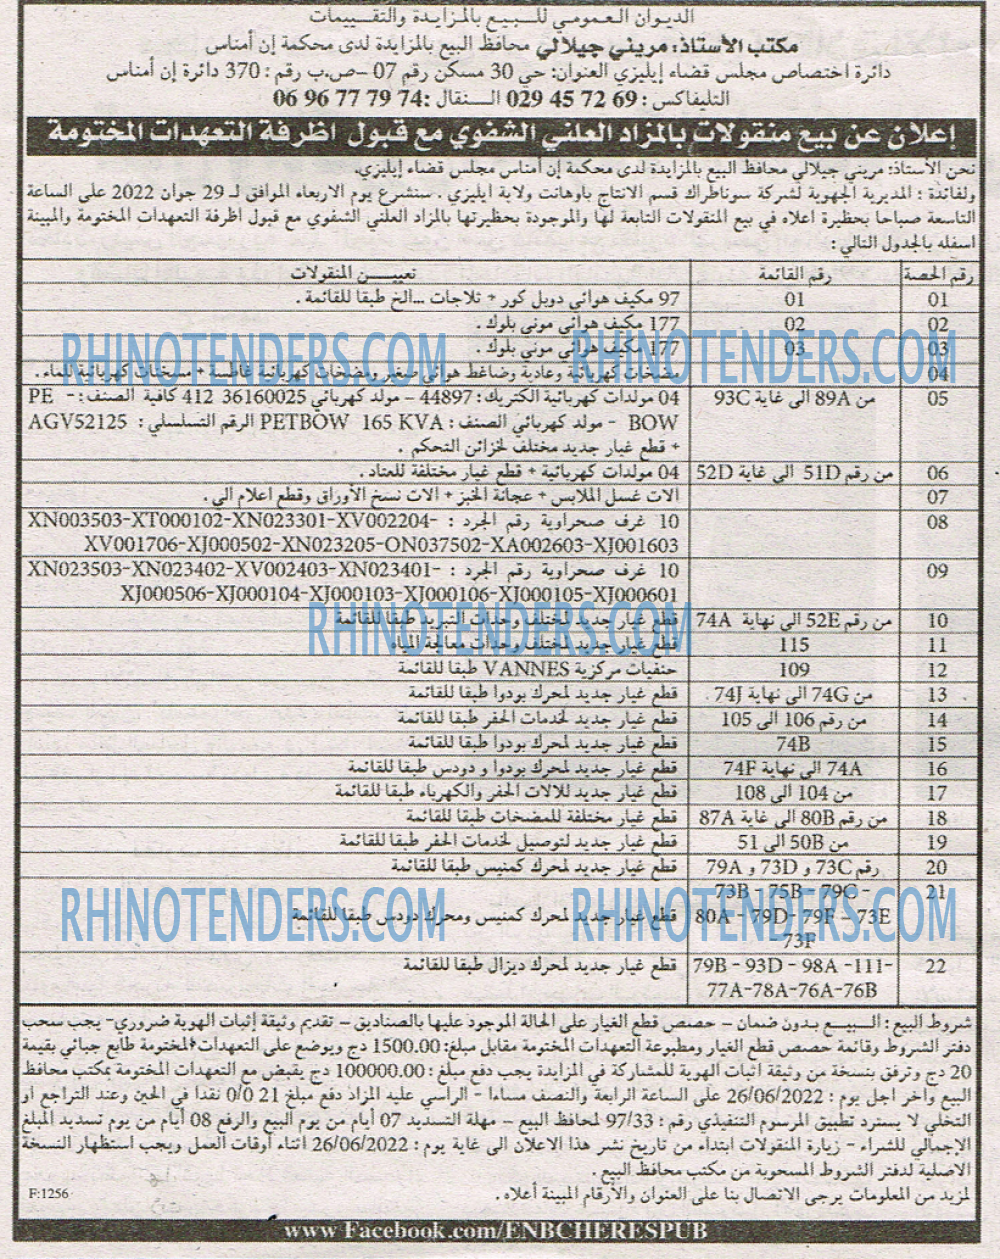 الديوان العمومي للبيع بالمزايدة والتقييمات
مكتب الأستاذ: مريني جيلالي محافظ البيع بالمزايدة لدى محكمة إن أمناس
دائرة اختصاص مجلس قضاء إيليزي العنوان: حي 30 مسكن رقم 07 –ص.ب رقم : 370 دائرة إن أمناس
التليفاكس : 69 72 45 029 النقال :74 79 77 96 06
إعلان عن بيع منقولات بالمزاد العلني الشفوي مع قبول اظرفة التعهدات المختومة
نحن الأستاذ: مريني جيلالي محافظ البيع بالمزايدة لدى محكمة إن أمناس مجلس قضاء إيليزي.
ولفائدة : المديرية الجهوية لشركة سوناطراك قسم الانتاج باوهانت ولاية ايليزي . سنشرع يوم الاربعاء الموافق لـ 29 جوان 2022 على الساعة
التاسعة صباحا بحظيرة اعلاه في بيع المنقولات التابعة لها والموجودة بحظيرتها بالمزاد العلني الشفوي مع قبول اظرفة التعهدات المختومة والمبينة
اسفله بالجدول التالي :
رقم الحصة رقم القائمة تعييـــن المنقولات
01 01 97 مكيف هوائي دوبل كور + ثلاجات ...الخ طبقا للقائمة .
02 02 177 مكيف هوائي موني بلوك .
03 03 177 مكيف هوائي موني بلوك .
RHINOTENDERS.COM RHINOTENDERS.COM
04 مضخات كهربائية وعادية وضاغط هوائي صغير ومضخات كهربائية غاطسة + مسخنات كهربائية للماء .
05 من 89A الى غاية 93C 04 مولدات كهربائية الكتريك : 44897 – مولد كهربائي 36160025 412 كافية الصنف: - PE
BOW - مولد كهربائي الصنف : PETBOW 165 KVA الرقم التسلسلي : AGV52125
+ قطع غيار جديد مختلف لخزائن التحكم .
06 من رقم 51D الى غاية 52D 04 مولدات كهربائية + قطع غيار مختلفة للعتاد .
07 الات غسل الملابس + عجانة الخبز + الات نسخ الأوراق وقطع اعلام الي .
08 10 غرف صحراوية رقم الجرد : XN003503-XT000102-XN023301-XV002204-
XV001706-XJ000502-XN023205-ON037502-XA002603-XJ001603
09 10 غرف صحراوية رقم الجرد : XN023503-XN023402-XV002403-XN023401-
XJ000506-XJ000104-XJ000103-XJ000106-XJ000105-XJ000601
10 من رقم 52E الى نهاية 74A قطع غيار جديد لمختلف وحدات التبريد طبقا للقائمة
RHINOTENDERS.COM
11 115 قطع غيار جديد لمختلف وحدات معالجة المياه
12 109 حنفيات مركزية VANNES طبقا للقائمة
13 من 74G الى نهاية 74J قطع غيار جديد لمحرك بودوا طبقا للقائمة
14 من رقم 106 الى 105 قطع غيار جديد لخدمات الحفر طبقا للقائمة
15 74B قطع غيار جديد لمحرك بودوا طبقا للقائمة
16 74A الى نهاية 74F قطع غيار جديد لمحرك بودوا و دودس طبقا للقائمة
17 من 104 الى 108 قطع غيار جديد للالات الحفر والكهرباء طبقا للقائمة
18 من رقم 80B الى غاية 87A قطع غيار مختلفة للمضخات طبقا للقائمة
19 من 50B الى 51 قطع غيار جديد لتوصيل لخدمات الحفر طبقا للقائمة
20 رقم 73C و 73D و 79A قطع غيار جديد لمحرك كمنيس طبقا للقائمة
21 73B - 75B - 79C -
80A - 79D- 79F - 73E قطع غيار جديد لمحرك كمنيس ومحرك دودس طبقا للقائمة
- 73F
RHINOTENDERS.COM RHINOTENDERS.COM
22 79B - 93D - 98A -111- قطع غيار جديد لمحرك ديزال طبقا للقائمة
77A-78A-76A-76B
شروط البيع : الـبيـــع بـدون ضمـان – حصص قطع الغيار على الحالة الموجود عليها بالصناديق – تقديم وثيقة إثبات الهوية ضروري– يجب سحب
دفتر الشروط وقائمة حصص قطع الغيار ومطبوعة التعهدات المختومة مقابل مبلغ: 1500.00 دج ويوضع على التعهدات المختومة طابع جبائي بقيمة
20 دج وترفق بنسخة من وثيقة اثبات الهوية للمشاركة في المزايدة يجب دفع مبلغ : 100000.00 دج يقبض مع التعهدات المختومة بمكتب محافظ
البيع وآخر اجل يوم : 26/06/2022 على الساعة الرابعة والنصف مساءا - الراسي عليه المزاد دفع مبلغ 21 0/0 نقدا في الحين وعند التراجع او
التخلي لا يسترد تطبيق المرسوم التنفيذي رقم : 97/33 لمحافظ البيع – مهلة التسديد 07 أيام من يوم البيع والرفع 08 أيام من يوم تسديد المبلغ
الإجمالي للشراء - زيارة المنقولات ابتداء من تاريخ نشر هذا الاعلان الى غاية يوم : 26/06/2022 اثناء أوقات العمل ويجب استظهار النسخة
الاصلية لدفتر الشروط المسحوبة من مكتب محافظ البيع .
لمزيد من المعلومات يرجى الاتصال بنا على العنوان والأرقام المبينة أعلاه .
F:1256
www.Facebook.com/ENBCHERESPUB